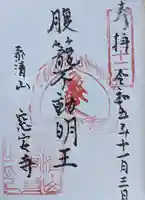 奉拝
令和五年十一月三日
腹籠不動明王
泰清山
窓安寺